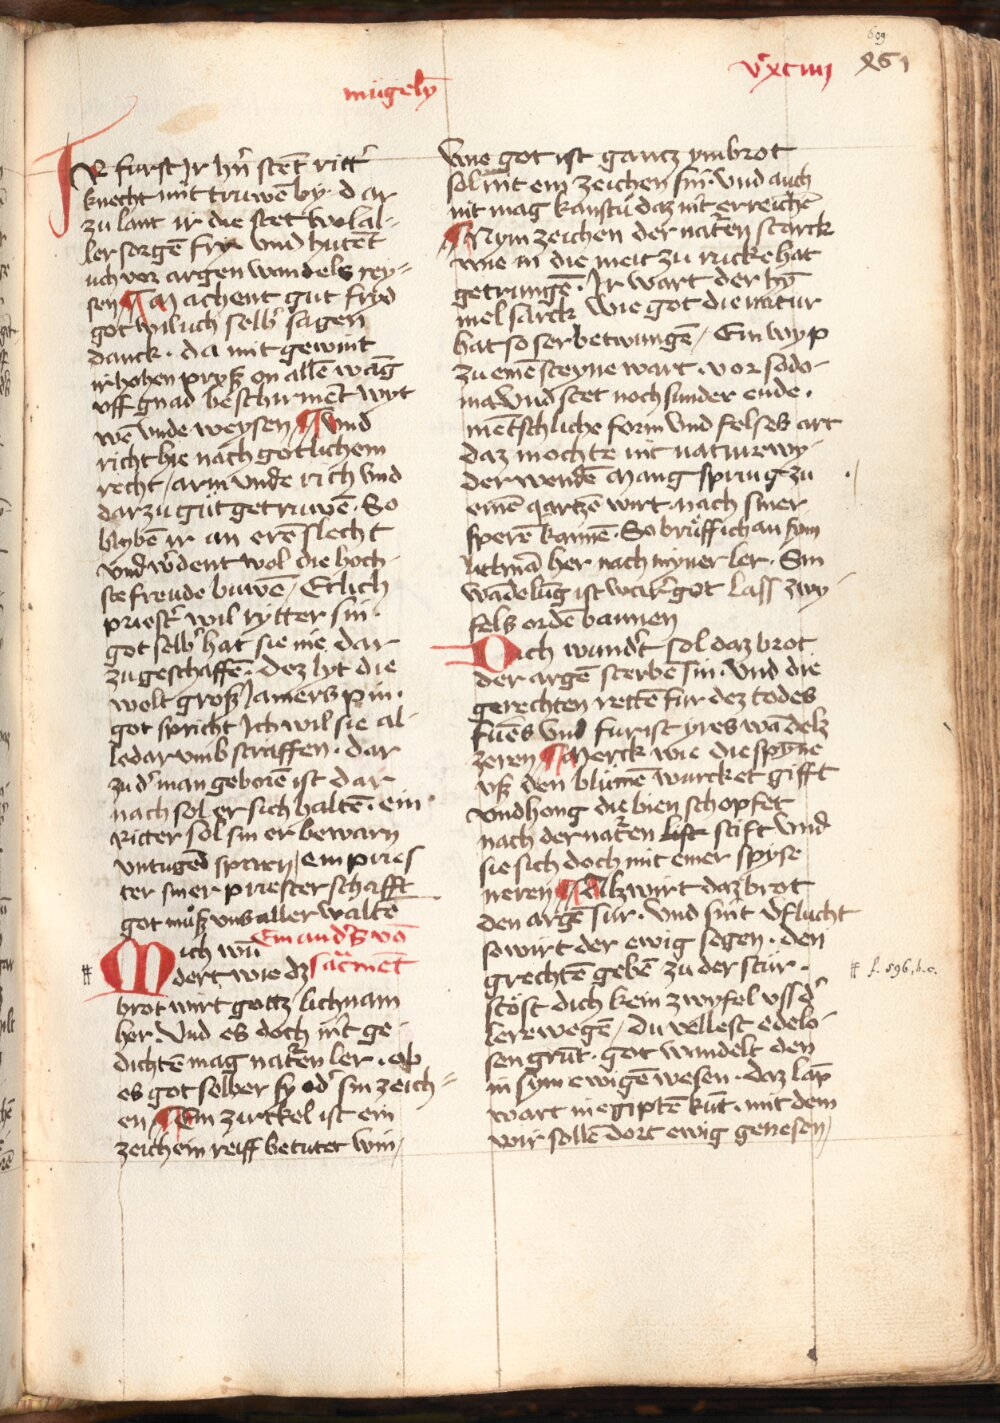 609
861
mügelÿ
vͨxciiij
IR furst Ir hñ stet rittʼ
knecht mit truwē by· dar
zu lant ir die stet wol al-
ler sorgē fry Vnd hutēt
uch vor argen wandels rey-
sen ¶ Machent gut fryd
got wil uch selbʼ sagen
danck· da mit gewint
ir hohen pryß on allē wāg
vff gnad beschirmēt wyt
wē vnde weysen ¶ Vnd
richt hie nach gotlichem
recht / arm vnde rich Vnd
dar zu gut getruwē· So
blybēn ir an erē slecht
vnd wʼdent wol die hoch-
ste freude buwē / Etlich
priestʼ wil rytter sin·
got selbʼ hat sie nie dar
zu geschaffē· Dez lyt die
welt groß Jamers pin·
got spricht Ich wil sie al-
le dar vmb straffen· dar
zu dʼ man geborē ist dar
nach sol er sich haltē· ein
Ritter sol sin er bewarn
vntugēd sparen / em pries
ter siner priesterschafft
got muß vns aller waltē
Ein andʼs vō
Mich wū
sacmēt
dert wie dz
brot wirt gottz lichnam
her· Vnd es doch nʼt ge-
dichtē mag naturen ler· ob
es got selber sy odʼ sin zeich-
en ¶ Ein zirckel ist ein
zeich ein reiff betutet win /
Wie got ist gantz ym brot
sol nit ein zeichen sin· Vnd auch
nit mag kanstu daz nit erreichē
¶ Nym zeichen der naturen starck
wie in die meit zu rucke hat
getrungē· Ir wart der hȳ
mel sarck Wie got die natur
hat so ser betwungē / Ein wyp
zu einē steyne wart· vor sodo-
ma Vnd stet noch sunder ende·
mētschliche form Vnd felses art
daz mochte nit natur ewy-
der wendē Mang sprung zu
einē gartzē wirt nach siner
sperē kamē· So bruff ich an sym
lichnā her nach myner ler· Sin
wādelūg ist war· got lass zwy-
fels ordē bannen
Och wundʼt sol daz brot
der argē sterbē sin· Vnd die
gerechten rettē fur dez todes
fuers Vnd furist yres wādelz
zeren ¶ Merck wie die spyne
vß den blumē wurcket gifft
vnd hong die bien schopfet
nach der naturen list stift Vnd
sie sich doch mit einer spyse
neren ¶ Alz wirt daz brot
den argē sur· Vnd sint vʼflucht
so wirt der ewig segen· den
grechtē gebē zu der stur·
stöst dich kein zwyfel vss dʼ
lere wegē / Du vellest edelo-
sen grūt· got wandelt den
in sym ewigē wesen· daz lāp
wart in egiptē kūt· mit dem
wir sollē dort ewig genesen /
# f. 596, b. c.